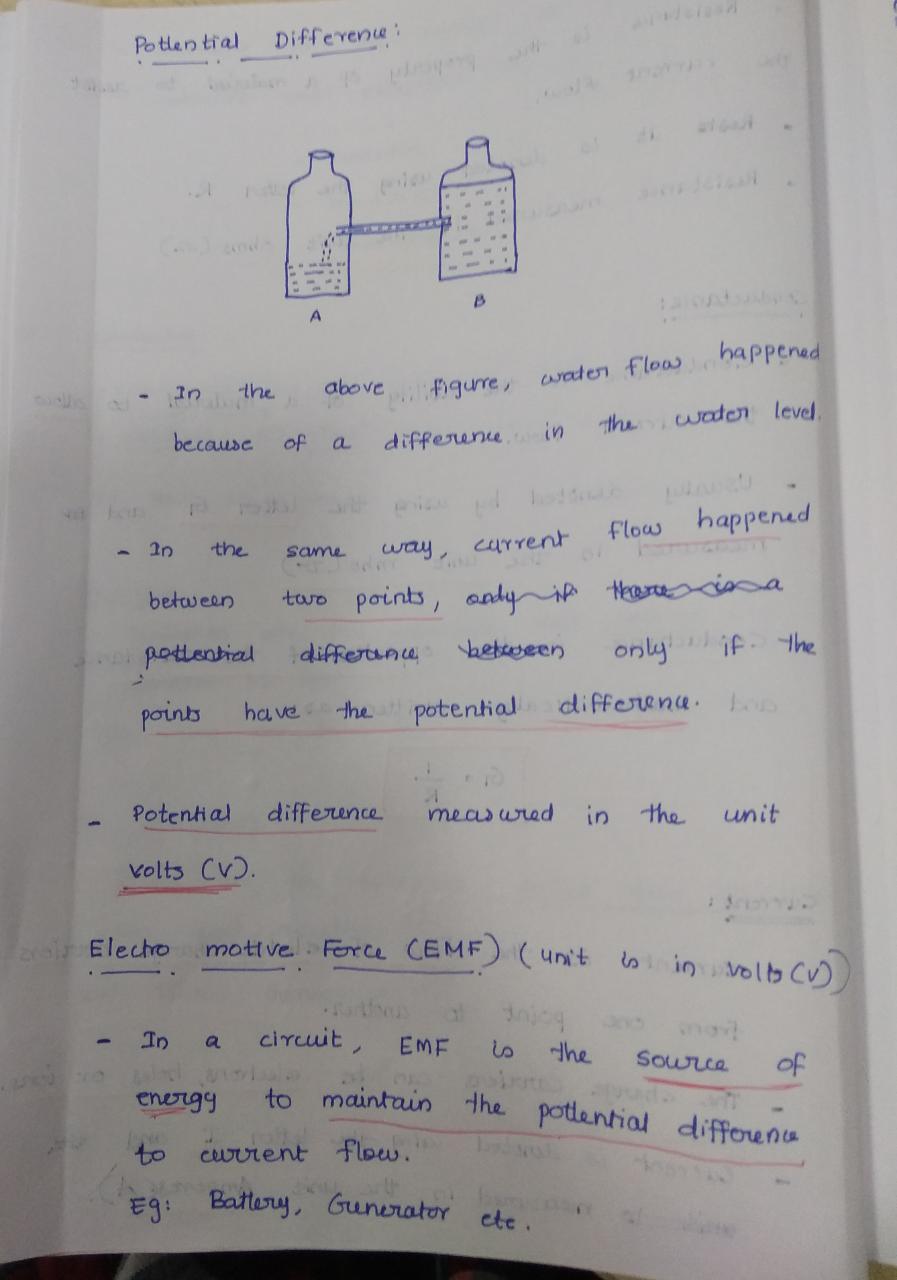 Pottential Difference:
A
B
- In the above figure, water flow happened
because of a difference in the water level.
- In the same way, current flow happened
between two points, only if there is a
pottential difference between only if the
points have the potential difference.
- Potential difference measured in the unit
volts (V).
Electro motive Force (EMF) (unit is in volts (V))
- In a circuit, EMF is the source of
energy to maintain the pottential difference
to current flow.
Eg: Battery, Generator etc.